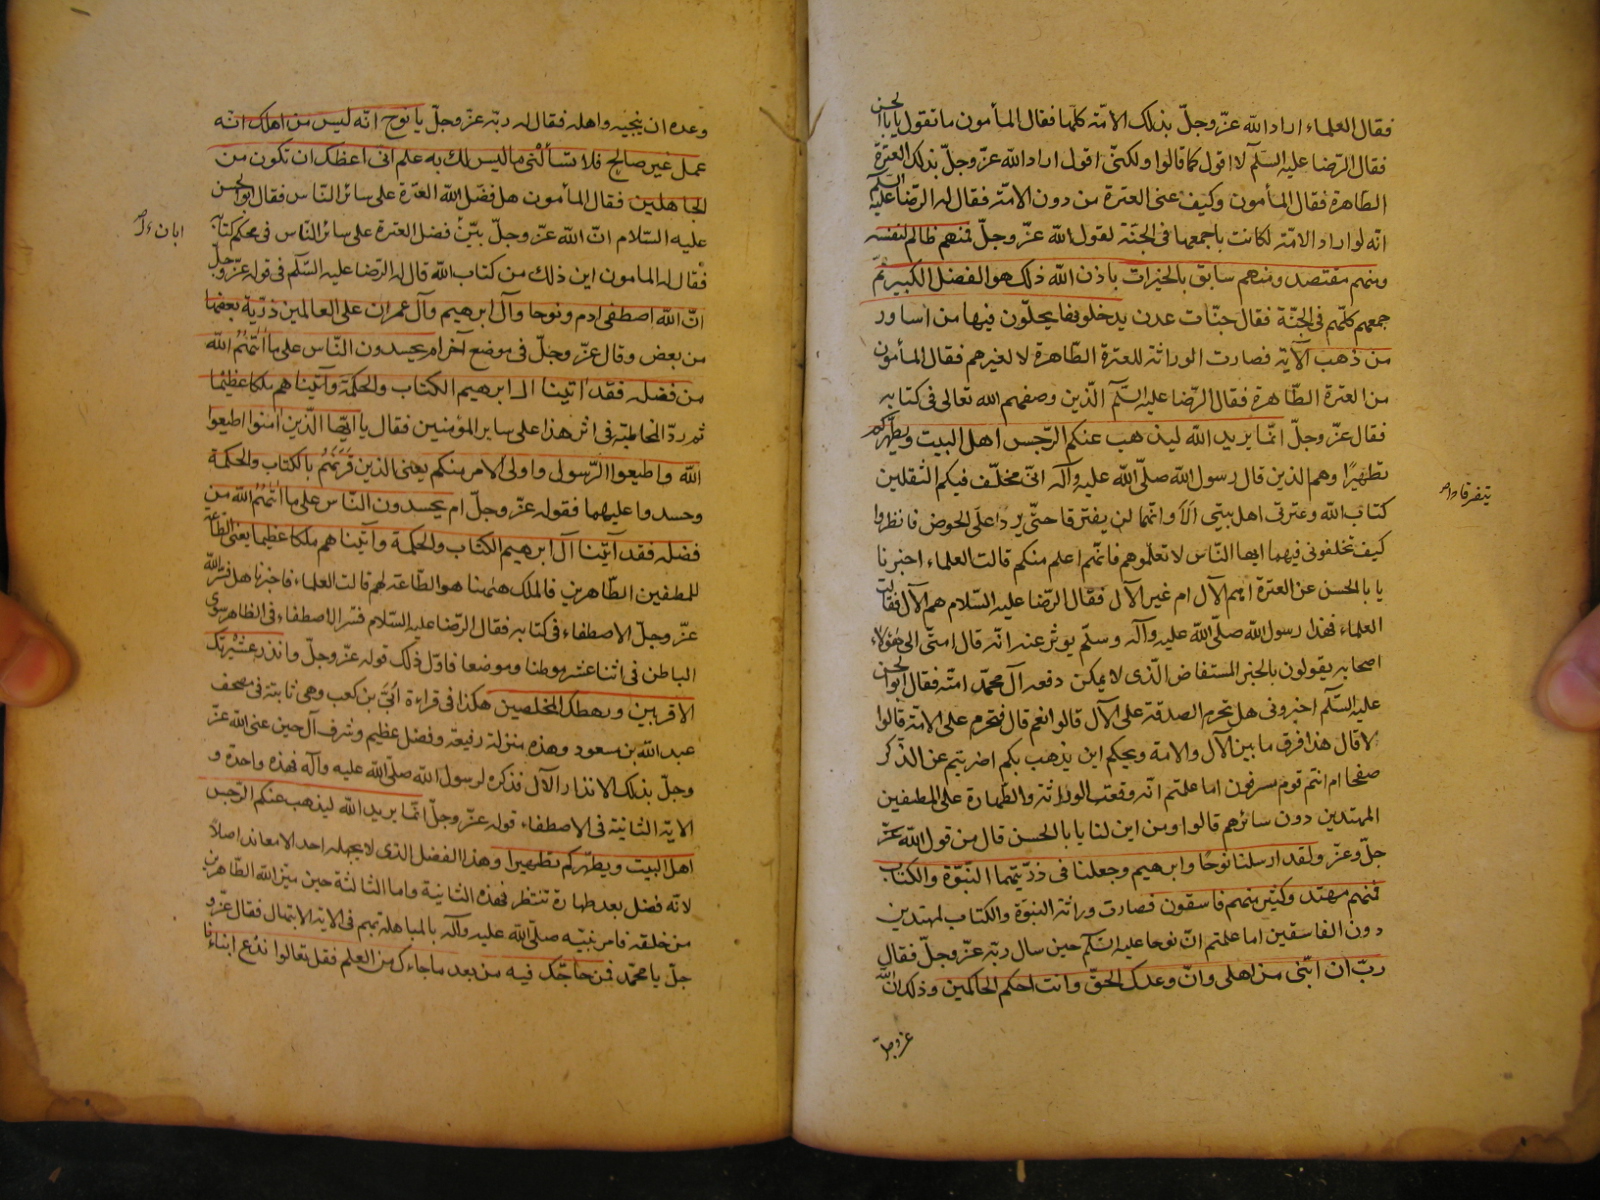 فقال العلماء اراد الله عزّ وجلّ بذلك الامّة كلّها فقال المأمون ما تقول يا ابا الحسن
فقال الرّضا عليه السّلم لا اقول كما قالوا ولكنّى اقول اراد الله عزّ وجلّ بذلك العترة
الطاهرة فقال المأمون وكيف عنى العترة من دون الامّة فقال له الرّضا عليه السّلم
انّه لو اراد الامّة لكانت باجمعها فى الجنّة لقول الله عزّ وجلّ فمنهم ظالم لنفسه
ومنهم مقتصد ومنهم سابق بالخيرات باذن الله ذلك هو الفضل الكبير ثمّ
جمعهم كلّهم فى الجنّة فقال جنّات عدن يدخلونها يحلّون فيها من اساور
من ذهب الآية فصارت الوراثة للعترة الطّاهرة لا لغيرهم فقال المأمون
من العترة الطّاهرة فقال الرّضا عليه السّلم الّذين وصفهم الله تعالى فى كتابه
فقال عزّ وجلّ انّما يريد الله ليذهب عنكم الرّجس اهل البيت ويطهّركم
تطهيرًا وهم الذين قال رسول الله صلّى الله عليه وآله انّى مخلّف فيكم الثقلين
كتاب الله وعترتى اهل بيتى الا وانّهما لن يفترقا حتّى يردا على الحوض فانظروا
كيف تخلفونى فيهما ايها النّاس لا تعلّموهم فانّهم اعلم منكم قالت العلماء اخبرنا
يا بالحسن عن العترة اهم الآل ام غير الآل فقال الرّضا عليه السّلام هم الآل فقالت
العلماء فهذا رسول الله صلّى الله عليه وآله وسلّم يوثر عنه انّه قال امّتى الى وهؤلاء
اصحابه يقولون بالخبر المستفاض الّذى لا يمكن دفعه آل محمّد امّته فقال ابو الحسن
عليه السّلم اخبرونى هل تحرم الصدقة على الآل قالوا نعم قال فتحرم على الامّة قالوا
لا قال هذا فرق ما بين الآل والامة ويحكم اين يذهب بكم اضربتم عن الذّكر
صفحا ام انتم قوم مسرفون اما علمتم انّه وقعت الوراثة والطّهارة على المصطفين
المهتدين دون سائرهم قالوا ومن اين لنا يا بالحسن قال من قول الله عزّ
جلّ وعزّ ولقد ارسلنا نوحًا وابرهيم وجعلنا فى ذرّيّتهما النّبوّة والكتاب
فمنهم مهتد وكثير منهم فاسقون فصارت وراثة النبوّة والكتاب للمهتدين
دون الفاسقين اما علمتم انّ نوحا عليه السّلم حين سال ربّه عزّ وجلّ فقال
ربّ ان ابنى من اهلى وانّ وعدك الحقّ وانت احكم الحاكمين وذلك انّ الله
عزّ وجلّ
يتفرقا
وعده ان ينجيه واهله فقال له ربّه عزّ وجلّ يا نوح انّه ليس من اهلك انّه
عمل غير صالح فلا تسألنى ما ليس لك به علم انى اعظك ان تكون من
الجاهلين فقال المأمون هل فضّل الله العترة على سائر النّاس فقال ابو الحسن
عليه السّلام انّ الله عزّ وجلّ بيّن فضل العترة على سائر النّاس فى محكم كتابه
فقال له المامون اين ذلك من كتاب الله قال له الرّضا عليه السّلم فى قوله عزّ وجلّ
انّ الله اصطفى ادم ونوحا وآل ابرهيم وآل عمران على العالمين ذرّيّة بعضها
من بعض وقال عزّ وجلّ فى موضع آخر ام يحسدون النّاس على ما اتيهم الله
من فضله فقد اتينا ال ابرهيم الكتاب والحكمة وآتيناهم ملكا عظيما
ثم ردّ المخاطبة فى اثر هذا على ساير المؤمنين فقال يا ايّها الّذين امنوا اطيعوا
الله واطيعوا الرّسول واولى الامر منكم يعنى الذين قرنهم بالكتاب والحكمة
وحسدوا عليهما فقوله عزّ وجلّ ام يحسدون النّاس على ما اتيهم الله من
فضله فقد آتينا آل ابرهيم الكتاب والحكمة وآتيناهم ملكا عظيما يعنى الطّاعة
للمصطفين الطّاهرين فالملك هيهنا هو الطّاعة لهم قالت العلماء فاخبرنا هل فسّر الله
عزّ وجلّ الاصطفاء فى كتابه فقال الرّضا عليه السّلام فسّر الاصطفاء فى الظاهر سوى
الباطن فى اثنا عشر موطنا وموضعا فاوّل ذلك قوله عزّ وجلّ وانذر عشيرتك
الاقربين ورهطك المخلصين هكذا فى قراءة ابىّ بن كعب وهى ثابتة فى مصحف
عبد الله بن مسعود وهذه منزلة رفيعة وفضل عظيم وشرف آل حين عنى الله عزّ
وجلّ بذلك الانذار الآل فذكره لرسول الله صلّى الله عليه وآله فهذه واحدة و
الاية الثانية فى الاصطفاء قوله عزّ وجلّ انّما يريد الله ليذهب عنكم الرّجس
اهل البيت ويطهّركم تطهيرا وهذا الفضل الّذى لا يجهله احد الا معاند اصلا
لانّه فضل بعد طهارة تنتظر فهذه الثانية واما الثالثة حين ميّز الله الطّاهرين
من خلقه فامر نبيّه صلّى الله عليه وآله بالمباهلة بهم فى الاية الابتهال فقال عزّ و
جلّ يا محمّد فمن حاجّك فيه من بعد ما جاءك من العلم فقل تعالوا ندع ابناءنا
ابان